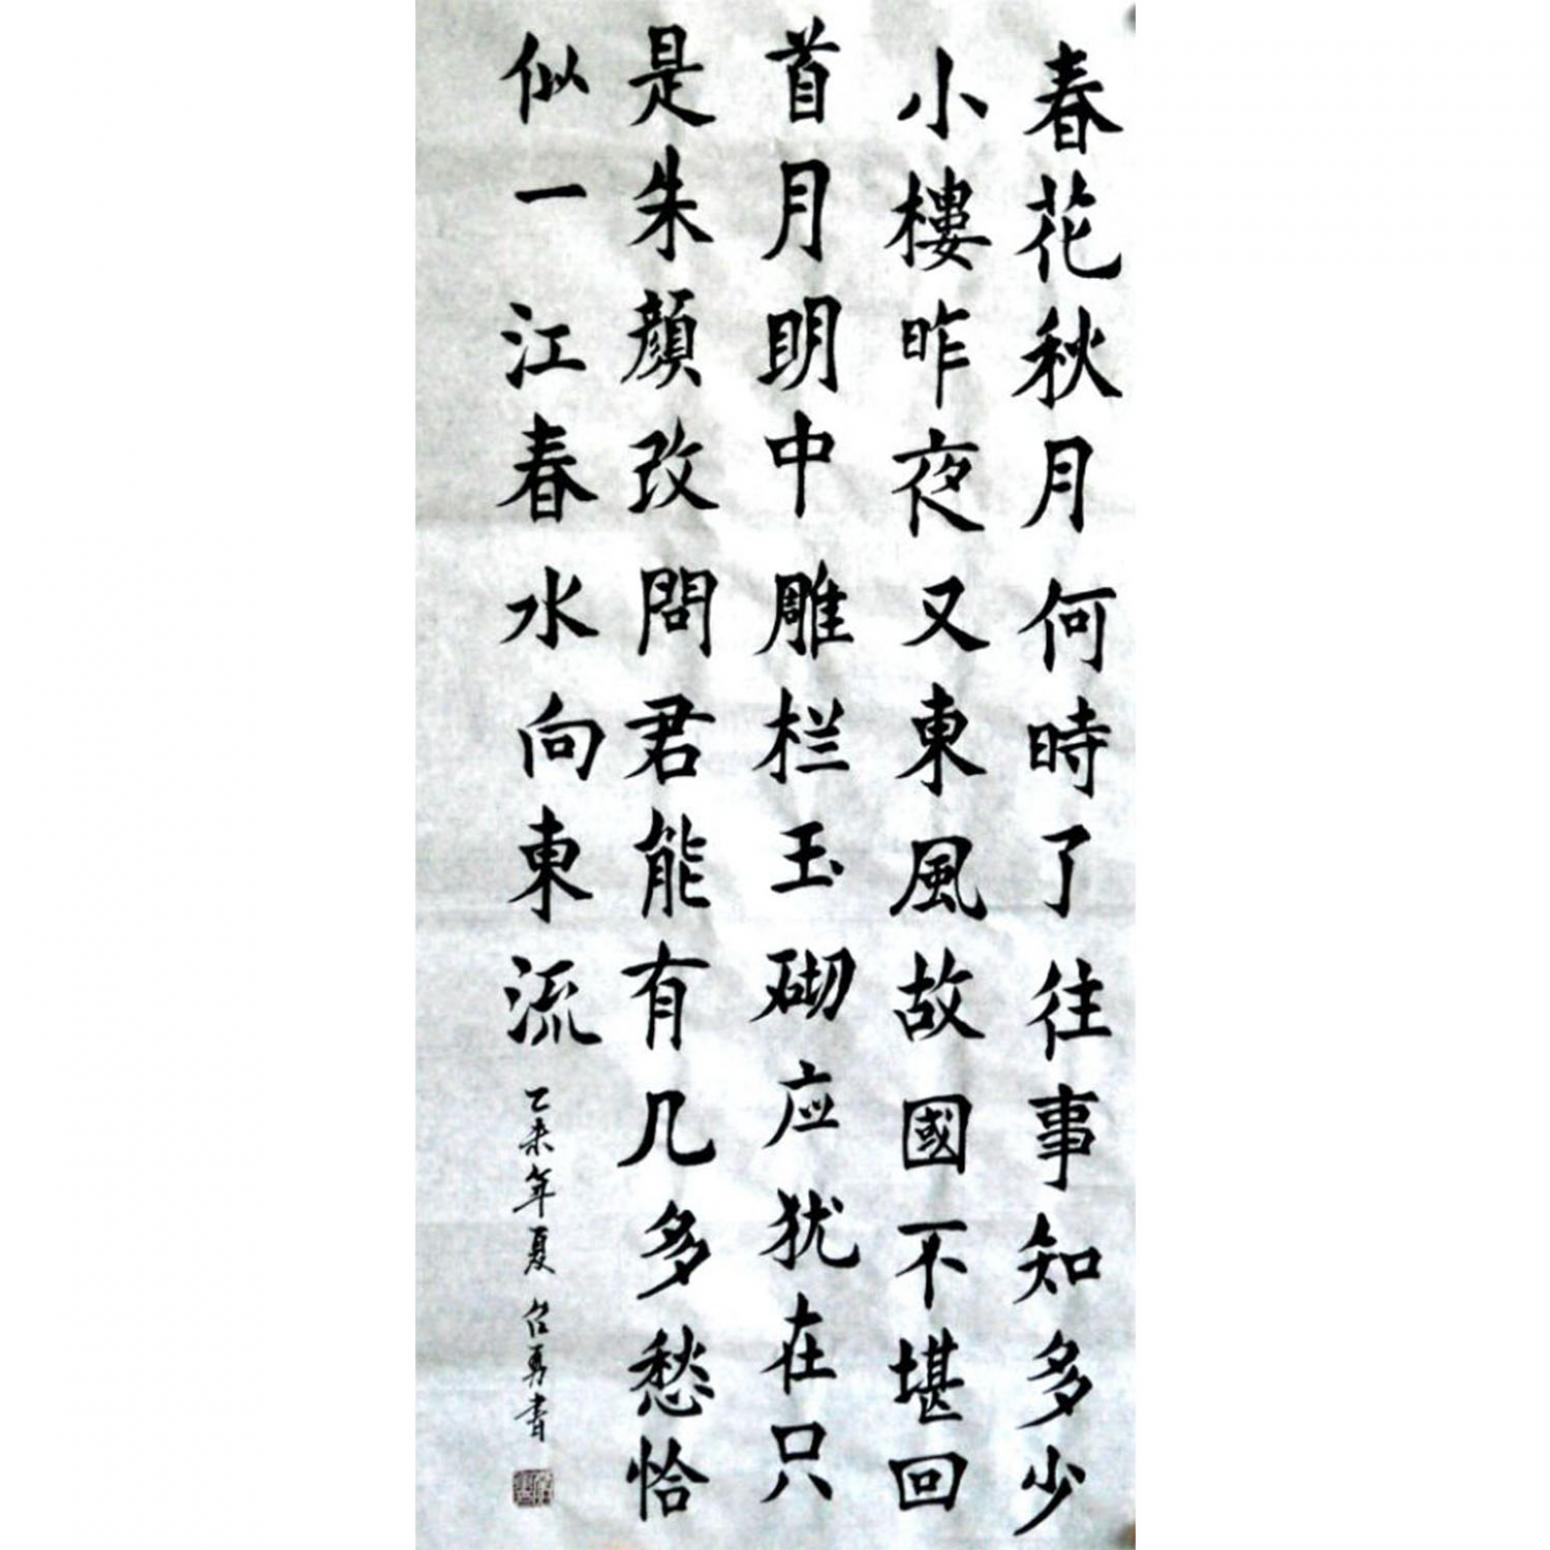 春花秋月何時了往事知多少
小樓昨夜又東風故國不堪回
首月明中雕栏玉砌应犹在只
是朱顔改問君能有几多愁恰
似一江春水向東流
乙未年夏 勇書